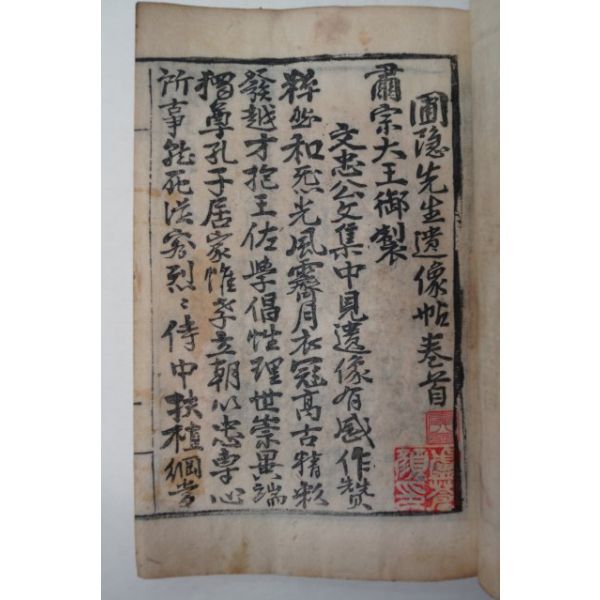 圃隐先生遺像帖卷首
肅宗大王御製
文忠公文集中見遺像有感作贊
粹然和炁光風霽月衣冠高古精彩
發越才抱王佐學倡性理世崇異端
獨尊孔子居家惟孝立朝以忠專心
所事能死從容烈〻侍中扶植綱常